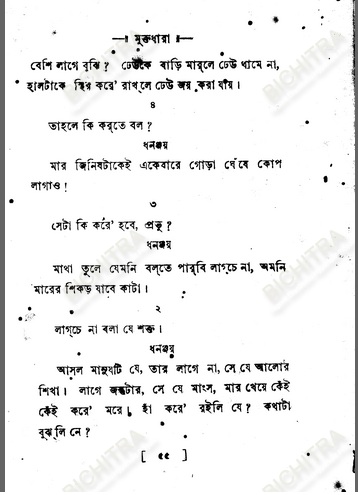 মুক্তধারা
বেশি লাগে বুঝি? ঢেউকে বাড়ি মার্‌লে ঢেউ থামে না,
হালটাকে স্থির করে' রাখ্‌লে ঢেউ জয় করা যায়।
৪
তাহলে কি কর্‌তে বল?
ধনঞ্জয়
মার জিনিষটাকেই একেবারে গোড়া ঘেঁষে কোপ
লাগাও!
৩
সেটা কি করে' হবে, প্রভু?
ধনঞ্জয়
মাথা তুলে যেমনি বল্‌তে পার্‌বি লাগ্‌চে না, অমনি
মারের শিকড় যাবে কাটা।
২
লাগ্‌চে না বলা যে শক্ত।
ধনঞ্জয়
আসল মানুষটি যে, তার লাগে না, সে যে আলোর
শিখা। লাগে জন্তুটার, সে যে মাংস, মার খেয়ে কেঁই
কেঁই করে' মরে। হাঁ করে' রইলি যে? কথাটা
বুঝ্‌লি নে?
[ ৫৫ ]
BICHITRA
BICHITRA
BICHITRA
BICHITRA
BICHITRA
BICHITRA